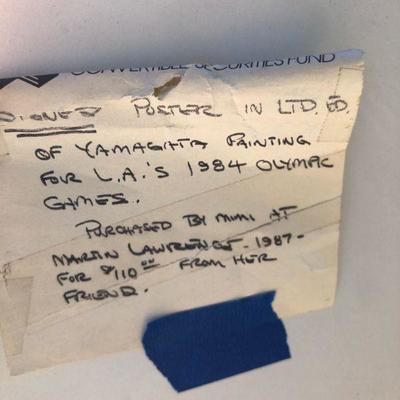 CONVERTIBLE SECURITIES FUND
SIGNED POSTER IN LTD. ED.
OF YAMAGATA PAINTING
FOR L.A.'S 1984 OLYMPIC
GAMES.
PURCHASED BY MIMI AT
MARTIN LAWRENCE - 1987 -
FOR $110.00 FROM HER
FRIEND.